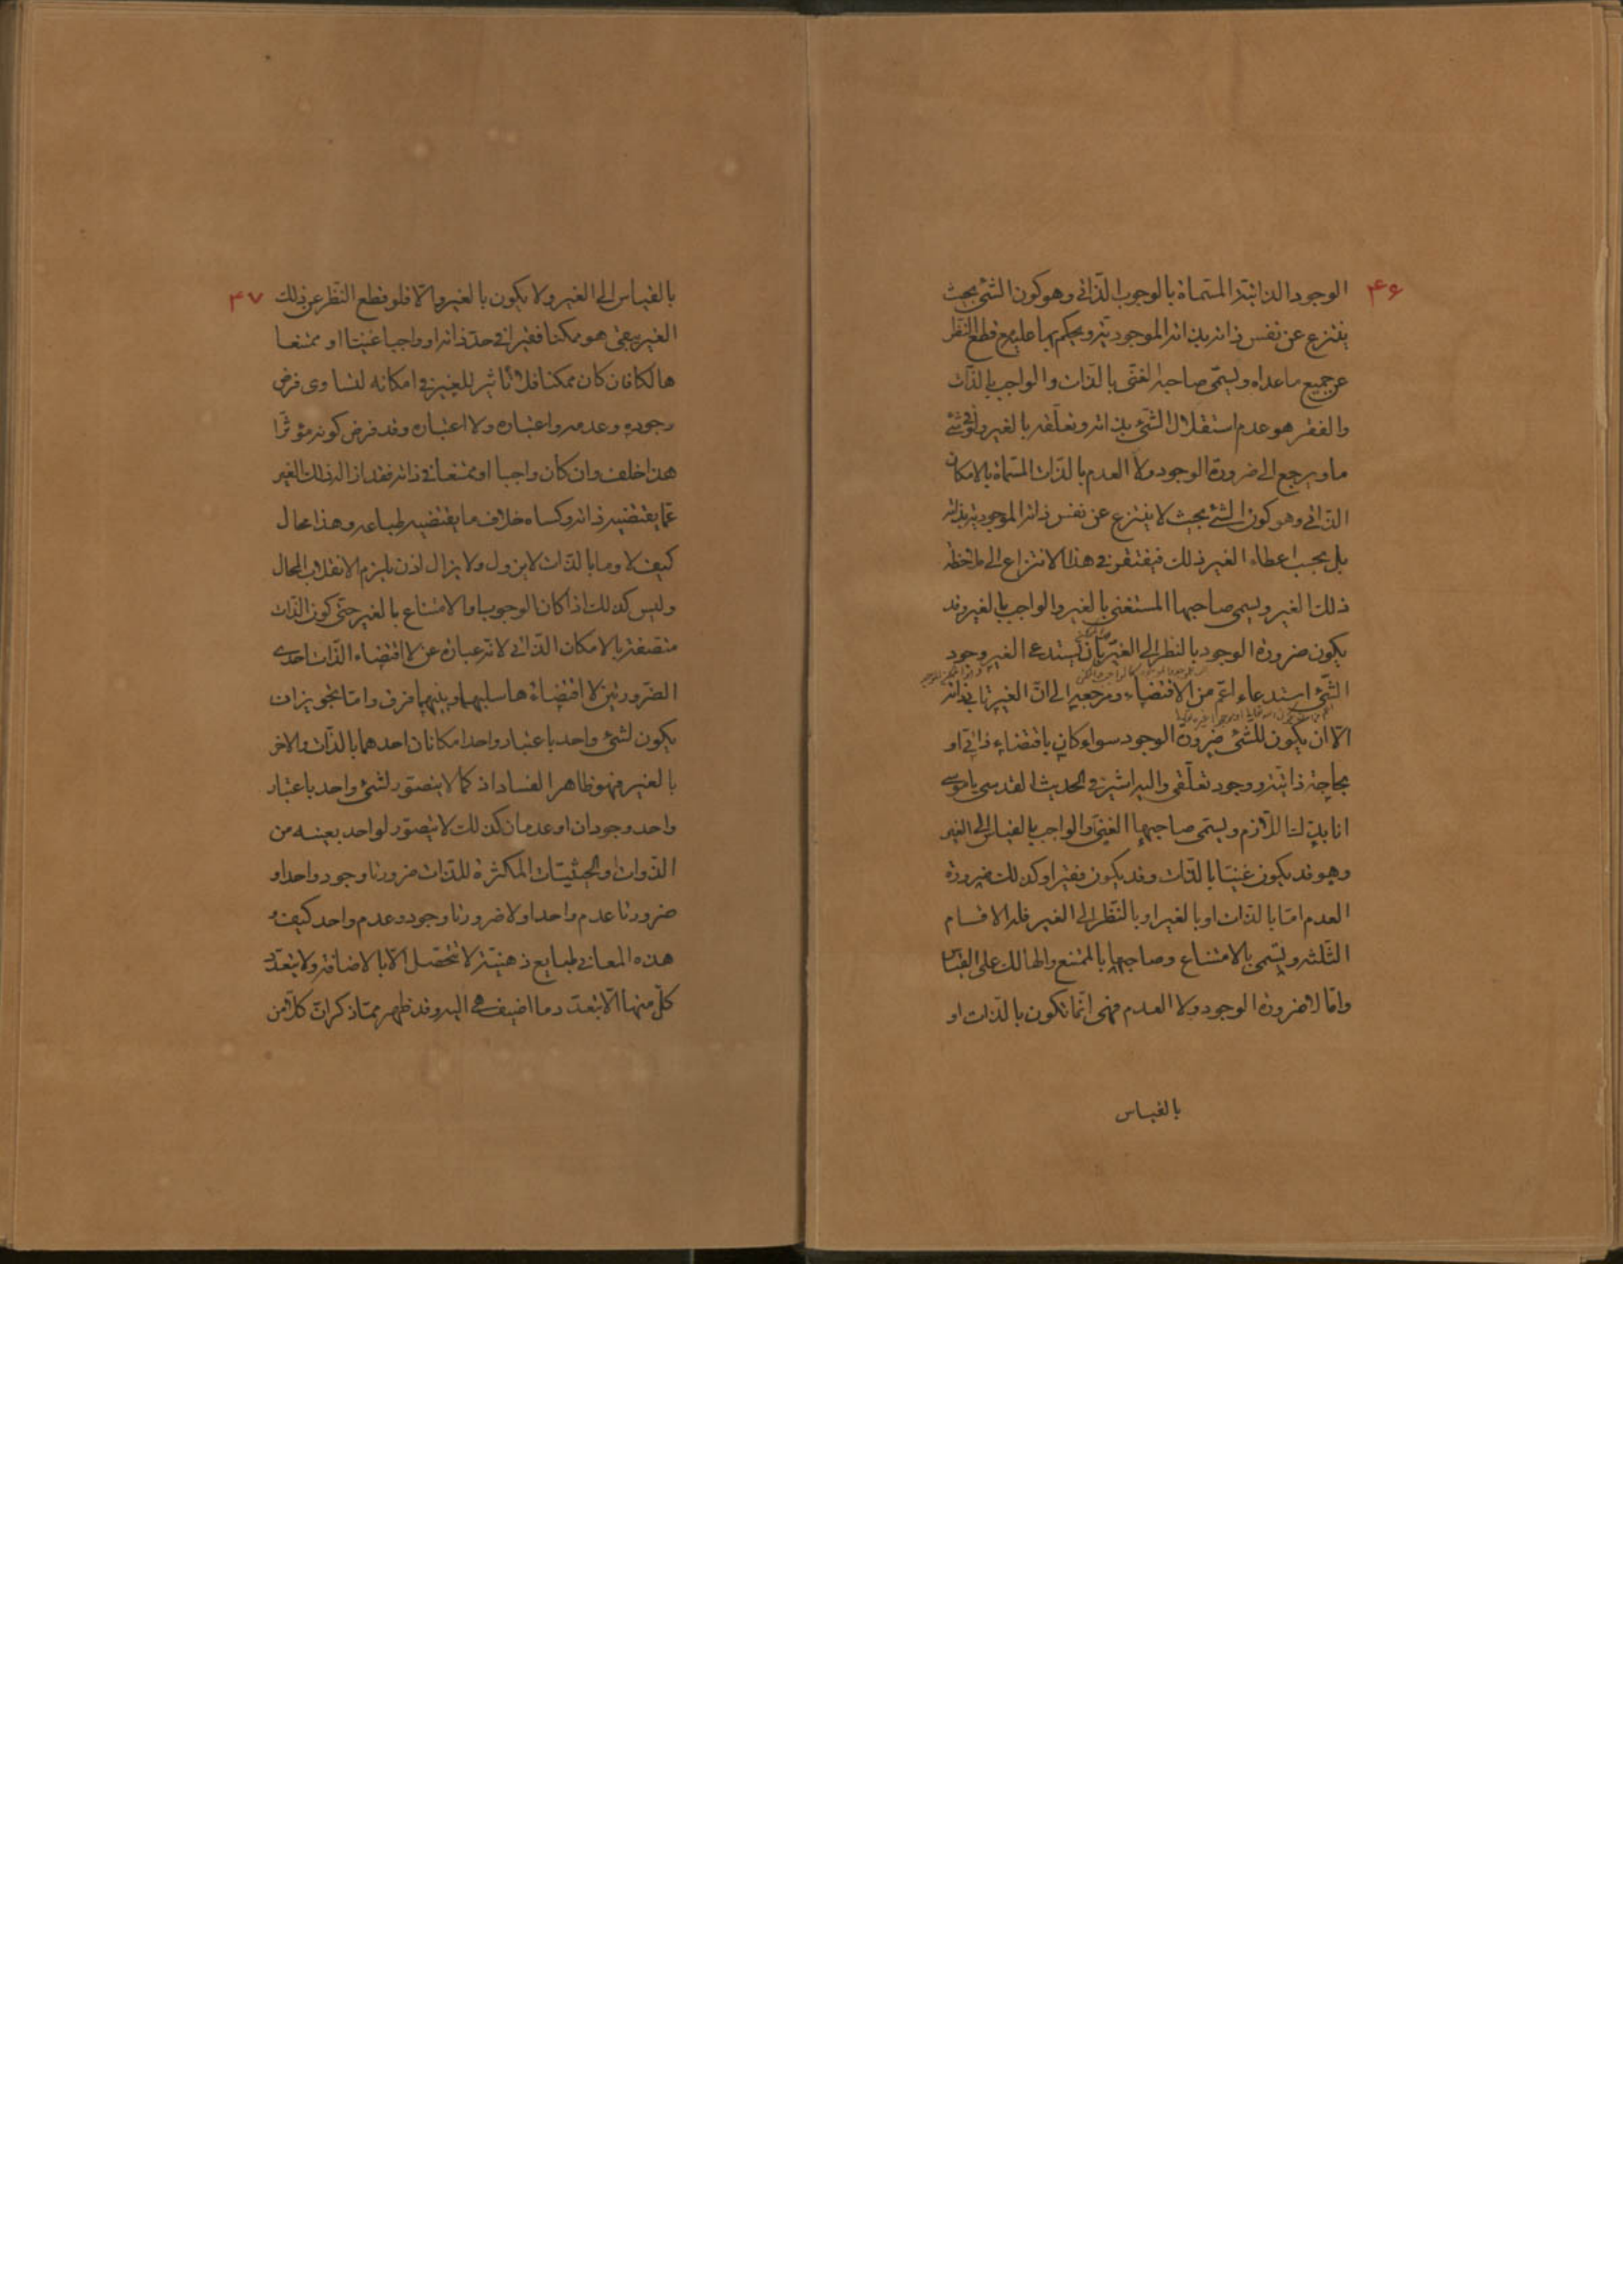 ۴۶
الوجود الذاتية المسماة بالوجوب الذاتى وهو كون الشئ بحيث
ينتزع عن نفس ذاته بذاته الموجودية ويحكم بها عليه مع قطع النظر
عن جميع ما عداه ويسمى صاحبه الغنى بالذات والواجب بالذات
والفقر هو عدم استقلال الشئ بذاته وتعلقه بالغير ولو فى شئ
ما ويرجع الى ضرورة الوجود ولا العدم بالذات المسماة بالامكان
الذاتى وهو كون الشئ بحيث لا ينتزع عن نفس ذاته الموجودية بذاته
بل بحسب اعطاء الغير ذلك فيفتقر فى هذا الانتزاع الى ملاحظة
ذلك الغير ويسمى صاحبها المستغنى بالغير والواجب بالغير وقد
يكون ضرورة الوجود بالنظر الى الغير بان يستدعى الغير وجود
الشئ استدعاء اعم من الاقتضاء ومرجعه الى ان الغير يابى ذاته
الا ان يكون للشئ ضرورة الوجود سواء كان باقتضاء ذاتى او
بحاجة ذاتية ووجود تعلقى واليه اشير فى الحديث القدسى يا موسى
انا بدك اللازم ويسمى صاحبها الغنى والواجب بالقياس الى الغير
وهو قد يكون غنيا بالذات وقد يكون فقيرا وكذلك ضرورة
العدم اما بالذات او بالغير او بالنظر الى الغير فله الاقسام
الثلثة ويسمى بالامتناع وصاحبها بالممتنع والهالك على القياس
واما لا ضرورة الوجود ولا العدم فهى انما تكون بالذات او
بالقياس
۴۷
بالقياس الى الغير ولا يكون بالغير والا فلو قطع النظر عن ذلك
الغير بقى هو ممكنا فقيرا فى حد ذاته او واجبا غنيا او ممتنعا
هالكا فان كان ممكنا فلا تاثير للغير فى امكانه لتساوى فرض
وجوده وعدمه واعتباره ولا اعتباره وقد فرض كونه مؤثرا
هذا خلف وان كان واجبا او ممتنعا فى ذاته فقد ازال ذلك الغير
عما يقتضيه ذاته وكساه خلاف ما يقتضيه طباعه وهذا محال
كيف لا وما بالذات لا يزول ولا يزال اذن يلزم الانقلاب المحال
وليس كذلك اذا كان الوجوب او الامتناع بالغير حتى كون الذات
متصفة بالامكان الذاتى لانه عبارة عن لا اقتضاء الذات احدى
الضرورتين لا اقتضاءها سلبهما وبينهما فرق واما تجويز ان
يكون لشئ واحد باعتبار واحد امكانان احدهما بالذات والاخر
بالغير فهو ظاهر الفساد اذ كما لا يتصور لشئ واحد باعتبار
واحد وجودان او عدمان كذلك لا يتصور لواحد بعينه من
الذوات والحيثيات المكثرة للذات ضرورتا وجود واحد او
ضرورتا عدم واحد او لا ضرورتا وجود وعدم واحد كيف و
هذه المعانى طبايع ذهنية لا تتحصل الا بالاضافة ولا يتعدد
كل منها الا بتعدد ما اضيف هى اليه وقد ظهر مما ذكر ان كلا من